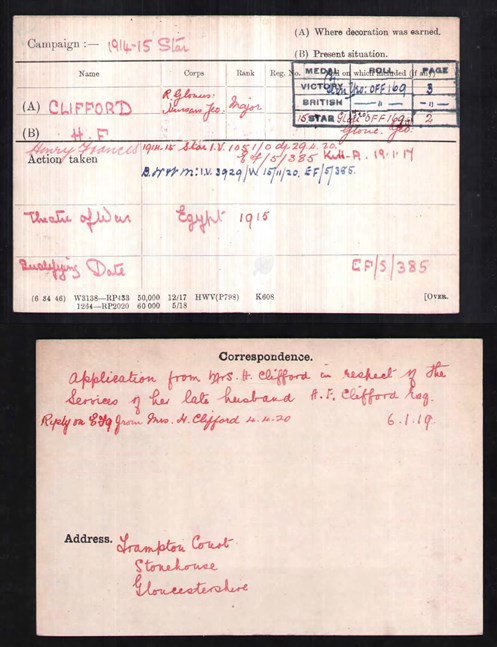 Campaign :— 1914-15 Star
(A) Where decoration was earned.
(B) Present situation.
Name Corps Rank Reg. No. Roll on which included (if any)
MEDAL ROLL PAGE
VICTORY Glou: Yeo: OFF 169 3
BRITISH —"— —"—
15 STAR Glou: Yeo: OFF 169 2
Glouc. Yeo:
(A) CLIFFORD R. Glouces: Hussars Yeo. Major
(B) H. F.
Henry Francis 1914-15 Star I.V. 1051/0 d/ 29.4.20.
Action taken EF/5/385 K in A. 19.1.17
B.W.V. M: I.V. 3929/W 15/11/20. EF/5/385.
Theatre of War Egypt 1915
Qualifying Date EF/5/385
(6 34 46) W3138—RP433 50,000 12/17 HWV(P798) K608 [OVER.
1264—RP2020 60 000 5/18
Correspondence.
Application from Mrs. H. Clifford in respect of the
Services of her late husband H. F. Clifford Esq.
Reply on from Mrs. H. Clifford 4.4.20 6.1.19.
Address. Frampton Court
Stonehouse
Gloucestershire